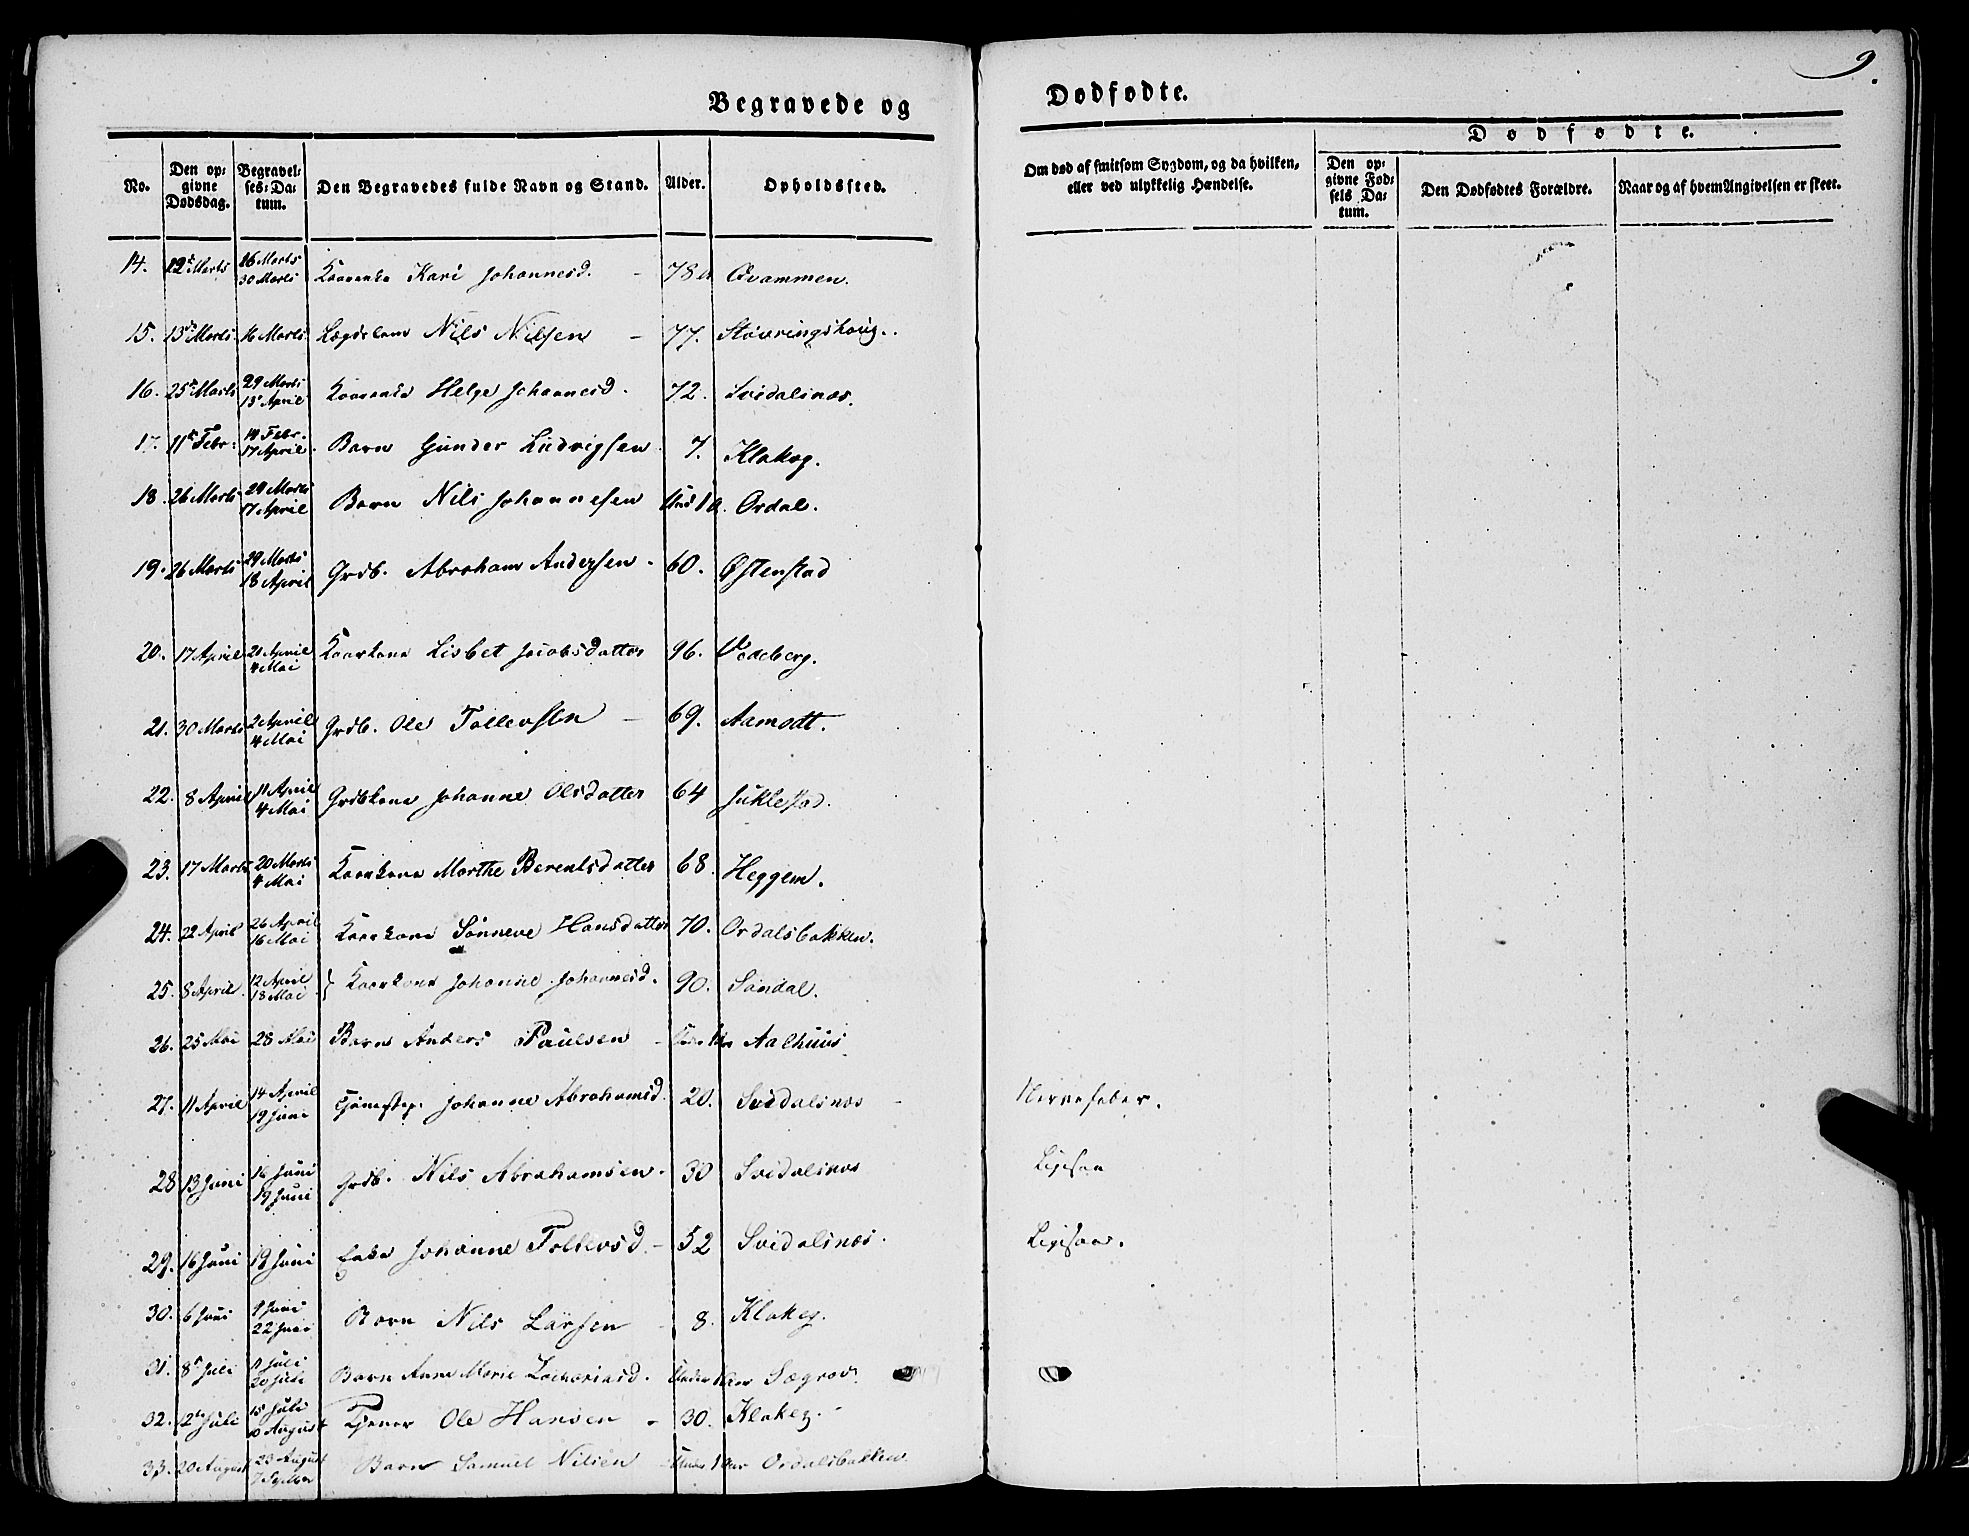 9.
Begravede og Dødfødte.
Dødfødte.
No. Den opgivne Dødsdag. Begravelses-Datum. Den Begravedes fulde Navn og Stand. Alder. Opholdssted. Om død af smitsom Sygdom, og da hvilken, eller ved ulykkelig Hændelse. Den opgivne Fødsels Datum. Den Dødfødtes Forældre. Naar og af hvem Angivelsen er skeet.
14. 12te Marts 16 Marts 30 Marts Kaarenke Kari Johannesd. - 78 Qvammen.
15. 13de Marts 16 Marts Lægdslem Nils Nilsen - 77. Støvringshoug.
16. 25de Marts 29 Marts 13de April Kaarenke Helge Johannesd. 72. Svidalsnæs.
17. 11te Febr. 14 Febr. 17 April Barn Gunder Ludvigsen 7. Klakeg.
18. 26 Marts 29 Marts 17 April Barn Nils Johannesen Und 1 a. Ordal.
19. 26 Marts 29 Marts 18 April Grdb. Abraham Andersen. 60. Østenstad
20. 17 April 21 April 4 Mai Kaarkone Lisbet Jacobsdatter 96. Vedeberg.
21. 30 Marts 2 April 4 Mai Grdb. Ole Tollevsen - 69. Aamodt.
22. 8 April 11 April 4 Mai Grdbkone Johanne Olsdatter 64 Juklestad.
23. 17 Marts 20 Marts 4 Mai Kaarkone Marthe Berentsdatter 68. Heggem.
24. 22 April 26 April 16 Mai Kaarkone Sønneve Hansdatter 70. Ordalsbakken.
25. 8 April. 12 April 18 Mai } Kaarkone Johanne Johannesd. 90. Sandal.
26. 25 Mai 28 Mai Barn Anders Paulsen - Under 1 Aar Aalhuus
27. 11 April 14 April 19 Juni Johanne Abrahamsd. 20. Svidalsnæs - Nervefeber.
28 13 Juni 16 Juni 19 Juni Grdb. Nils Abrahamsen. 30 Svidalsnæs Ligesaa
29. 16 Juni 19 Juni Enke Johanne Tollevsd. - 52 Svidalsnæs. Ligesaa.
30. 6 Juni 9 Juni 22 Juni Barn Nils Larsen - 8. Klakeg.
31. 8de Juli 11 Juli 20 Juli Barn Anne Marie Zachariasd. Under 1 Aar Sægrov.
32. 12te Juli 15 Juli 10 August Tjener Ole Hansen - 30. Klakeg.
33. 20 August 23 August 7 Septbr Barn Samuel Nilsen - Under 1 Aar Ordalsbakken